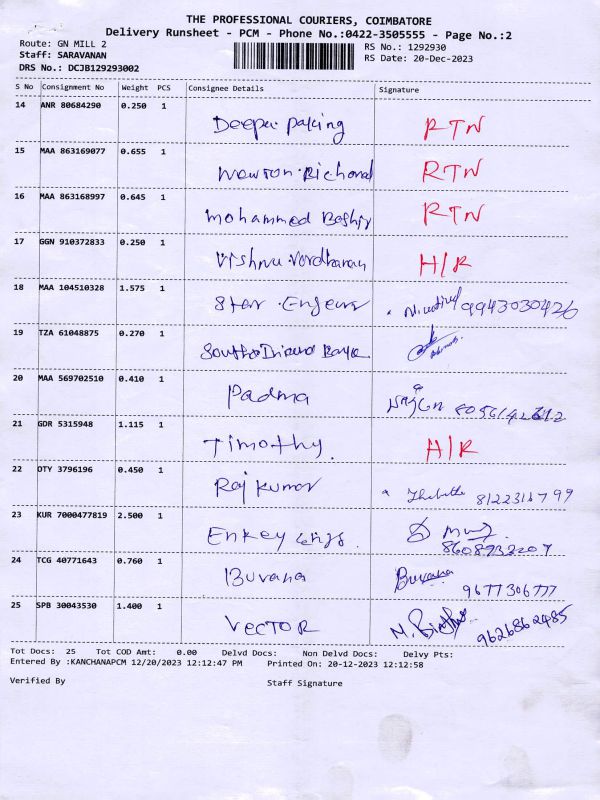 THE PROFESSIONAL COURIERS, COIMBATORE
Delivery Runsheet - PCM - Phone No.:0422-3505555 - Page No.:2
Route: GN MILL 2
RS No.: 1292930
Staff: SARAVANAN
RS Date: 20-Dec-2023
DRS No.: DCJB129293002
S No Consignment No Weight PCS Consignee Details Signature
14 ANR 80684290 0.250 1
Deepa paking RTN
15 MAA 863169077 0.655 1
Newton. Richard RTN
16 MAA 863168997 0.645 1
Mohammed Bashir RTN
17 GGN 910372833 0.250 1
Vishnu. Vardhanan H/R
18 MAA 104510328 1.575 1
Star. Engeers 9943030426
19 TZA 61048875 0.270 1
South Bank
20 MAA 569702510 0.410 1
Padma
21 GDR 5315948 1.115 1
Timothy. H/R
22 OTY 3796196 0.450 1
Raj kumar
23 KUR 7000477819 2.500 1
Enkey
8608932207
24 TCG 40771643 0.760 1
Buvana Buvana
9677306777
25 SPB 30043530 1.400 1
VECTOR 9626862485
Tot Docs: 25 Tot COD Amt: 0.00 Delvd Docs: Non Delvd Docs: Delvy Pts:
Entered By :KANCHANAPCM 12/20/2023 12:12:47 PM Printed On: 20-12-2023 12:12:58
Verified By Staff Signature